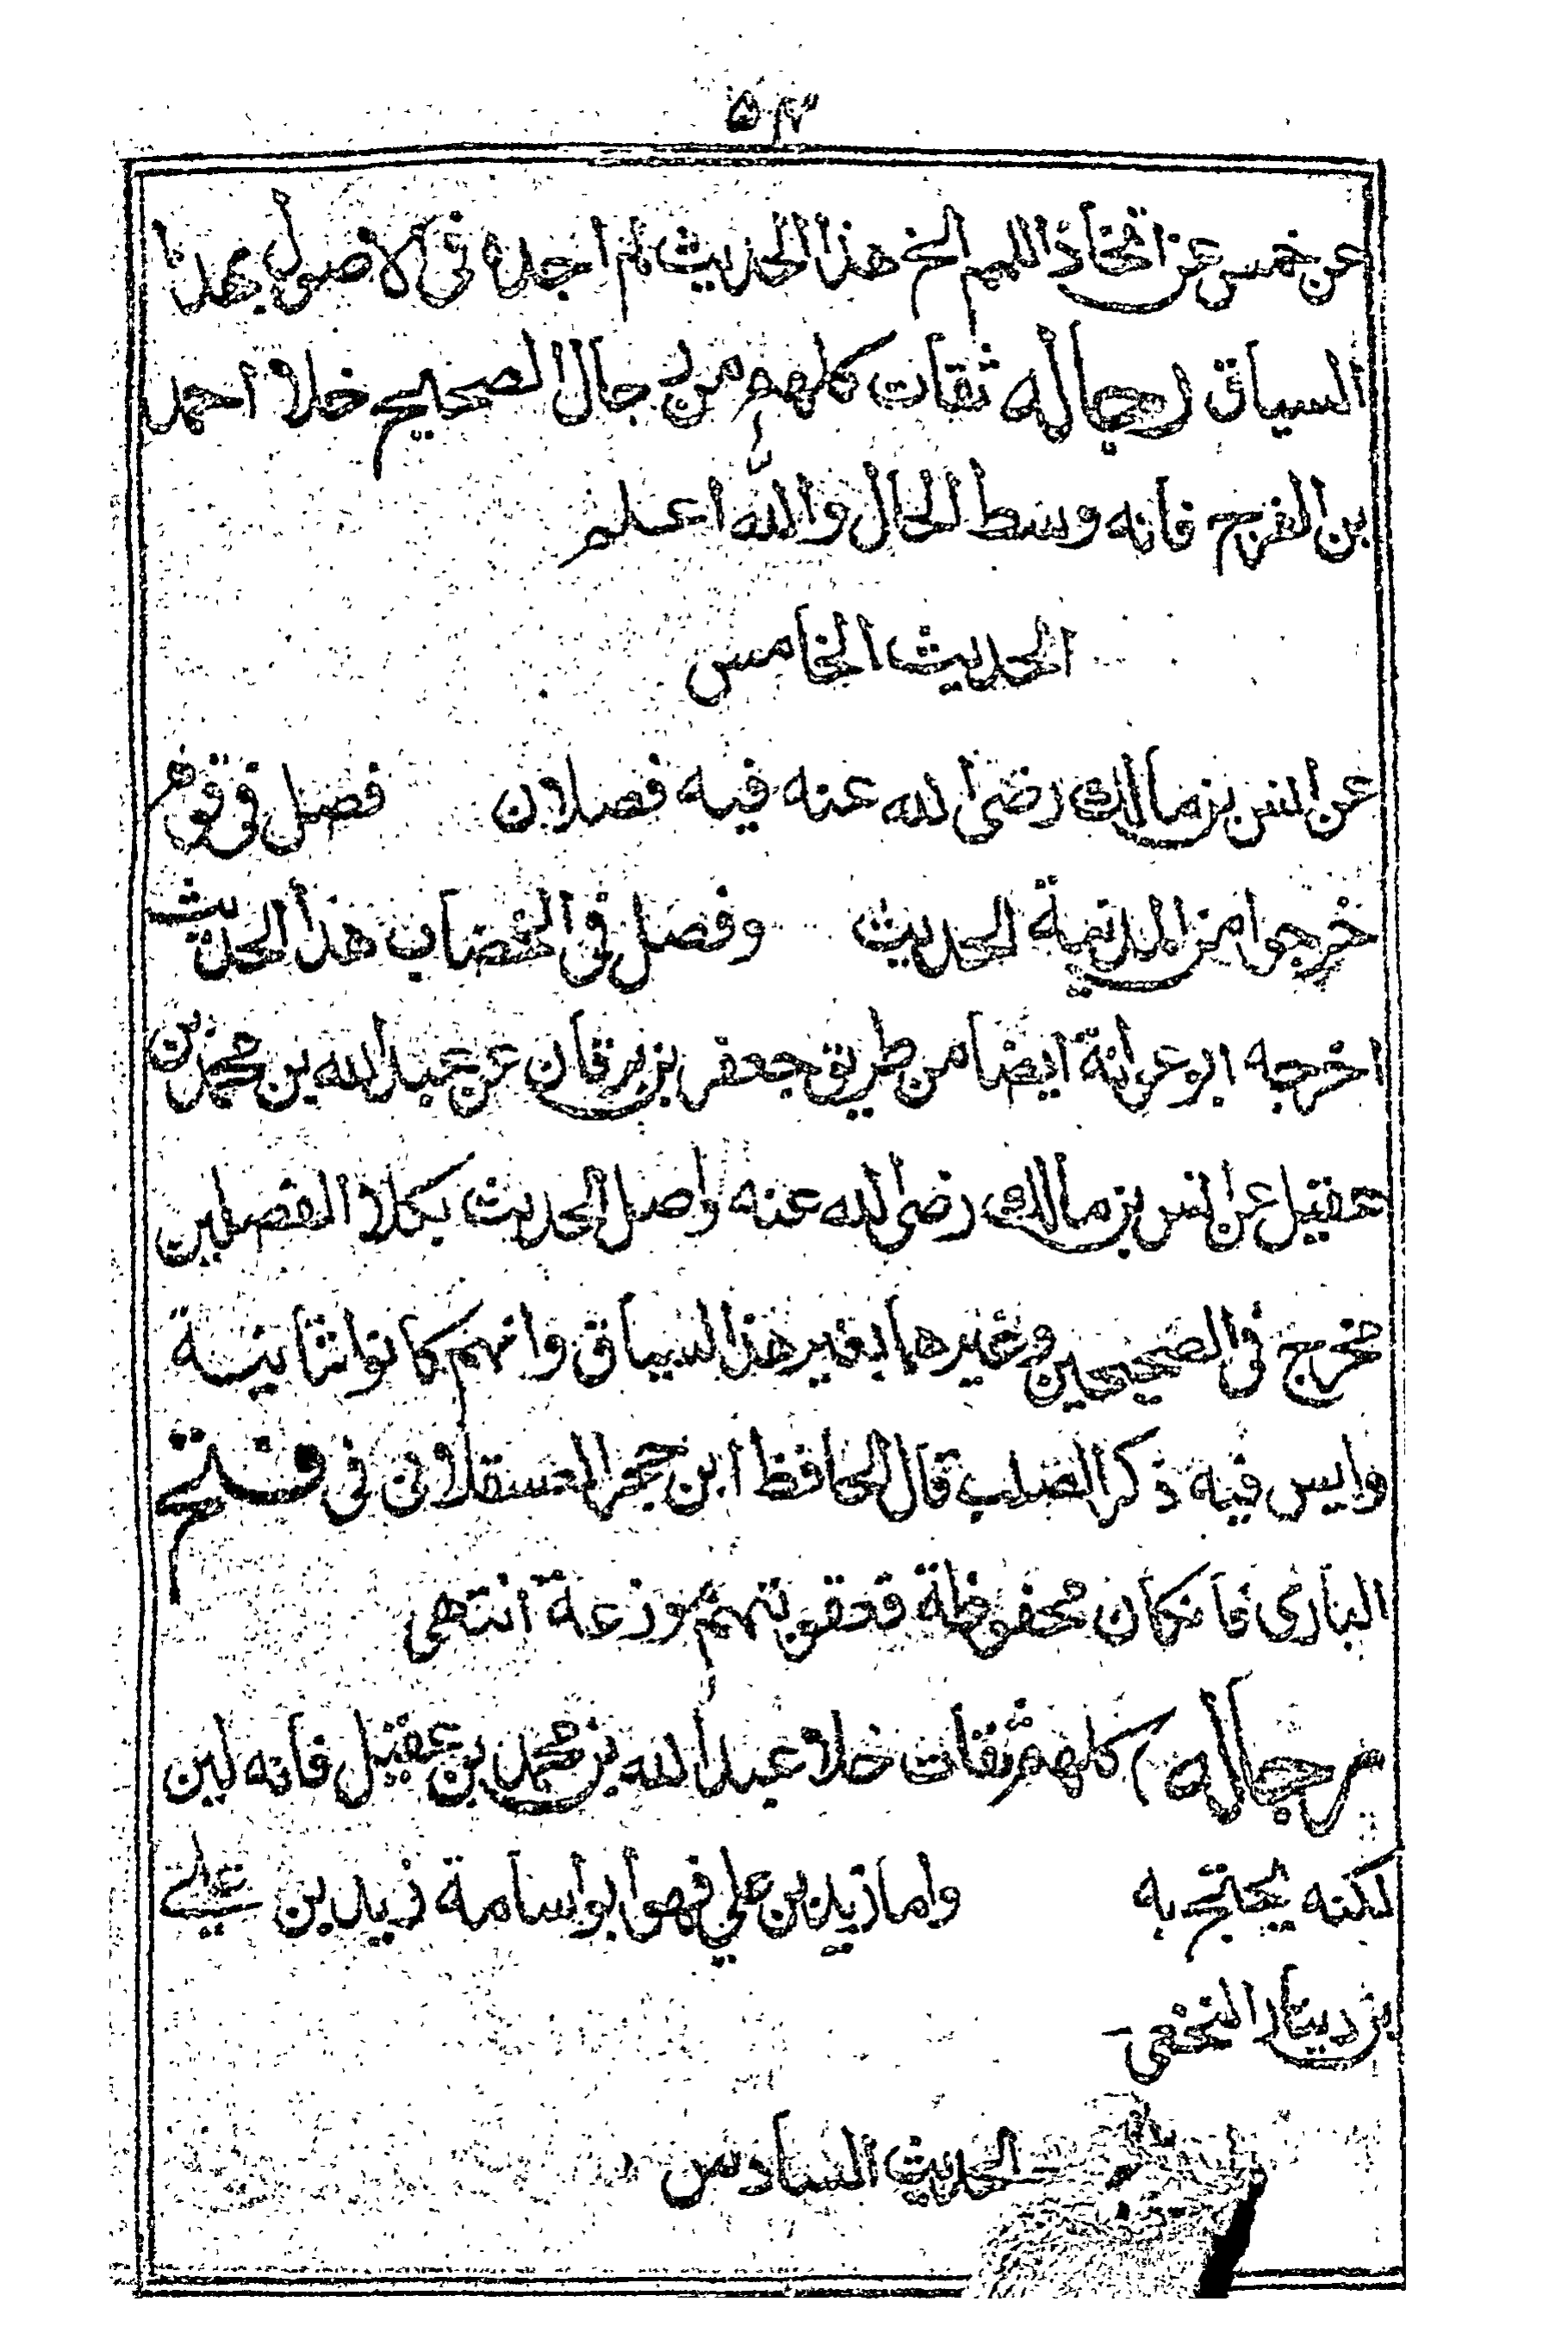 ۵۴
عن خمس عن اتخاذ اللهم الخ هذا الحديث لم اجده فى الاصول بهذا
السياق رجاله ثقات كلهم من رجال الصحيح خلا احمد
بن الفرج فانه وسط الحال والله اعلم
الحديث الخامس
عن انس بن مالك رضى الله عنه فيه فصلان فصل فى قوم
خرجوا من المدينة الحديث وفصل فى الخضاب هذا الحديث
اخرجه ابو عوانة ايضا من طريق جعفر بن برقان عن عبد الله بن محمد بن
عقيل عن انس بن مالك رضى الله عنه واصل الحديث بكلا الفصلين
مخرج فى الصحيحين وغيرهما بغير هذا السياق وانهم كانوا ثمانية
وليس فيه ذكر الصلب قال الحافظ ابن حجر العسقلانى فى فتح
البارى فان كان محفوظة فعقوبتهم موزعة انتهى
رجاله كلهم ثقات خلا عبد الله بن محمد بن عقيل فانه لين
لكنه يحتج به واما زيد بن علي فهو ابو اسامة زيد بن على
بن دينار النخعى
الحديث السادس